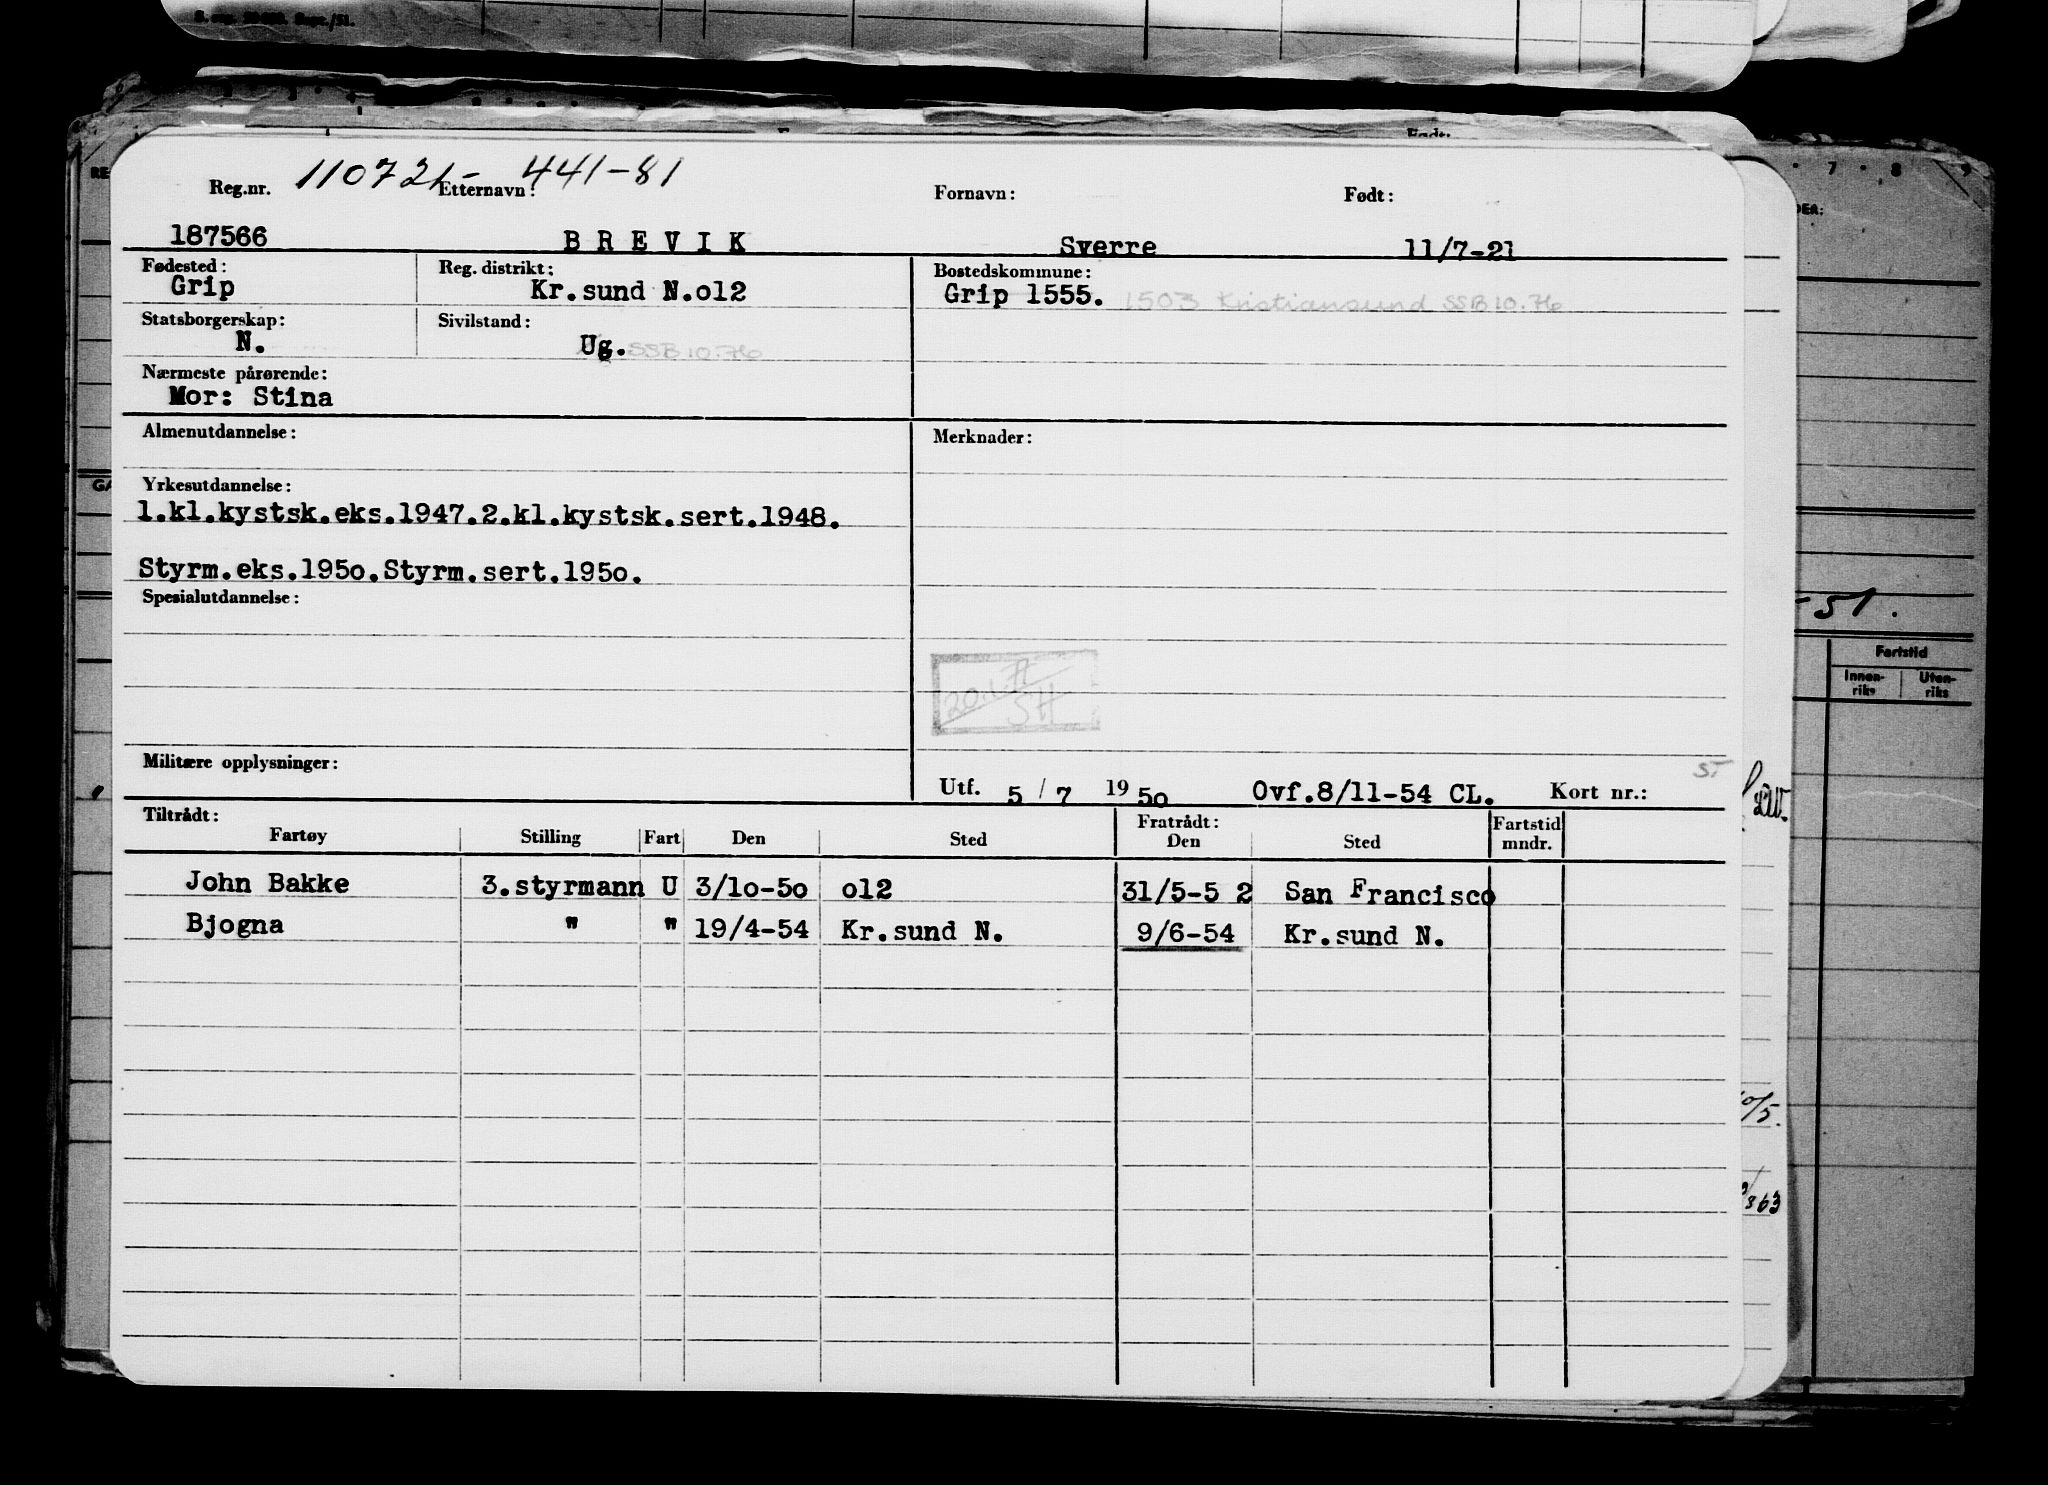 S. org. 20 000. Sept./51.
Født:
110721- 441-81
Reg.nr. Etternavn: Fornavn: Født:
187566 BREVIK Sverre 11/7-21
Fødested: Reg. distrikt: Bostedskommune:
Grip Kr.sund N.o12 Grip 1555. 1503 Kristiansund SSB 10.76
Statsborgerskap: Sivilstand:
N. Ug. SSB 10.76
Nærmeste pårørende:
Mor: Stina
Almenutdannelse: Merknader:
Yrkesutdannelse:
1.kl.kystsk.eks.1947.2.kl.kystsk.sert.1948.
Styrm.eks.195o.Styrm.sert.195o.
Spesialutdannelse:
Militære opplysninger:
Utf. 5 / 7 19 5o Ovf.8/11-54 CL. Kort nr.:
ST
Tiltrådt: Fratrådt: Fartstid
Fartøy Stilling Fart Den Sted Den Sted mndr.
John Bakke 3.styrmann U 3/1o-5o o12 31/5-5 2 San Francisco
Bjogna " " 19/4-54 Kr.sund N. 9/6-54 Kr.sund N.
7 8 9
-51.
Fartstid
Innen-
riks
Uten-
riks